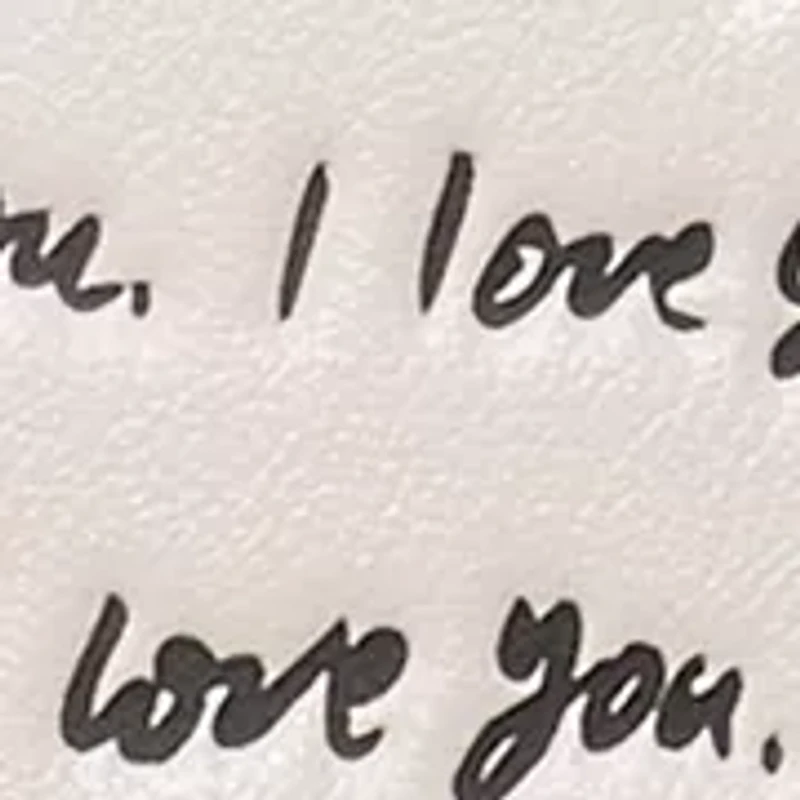 ou. I love y
love you.